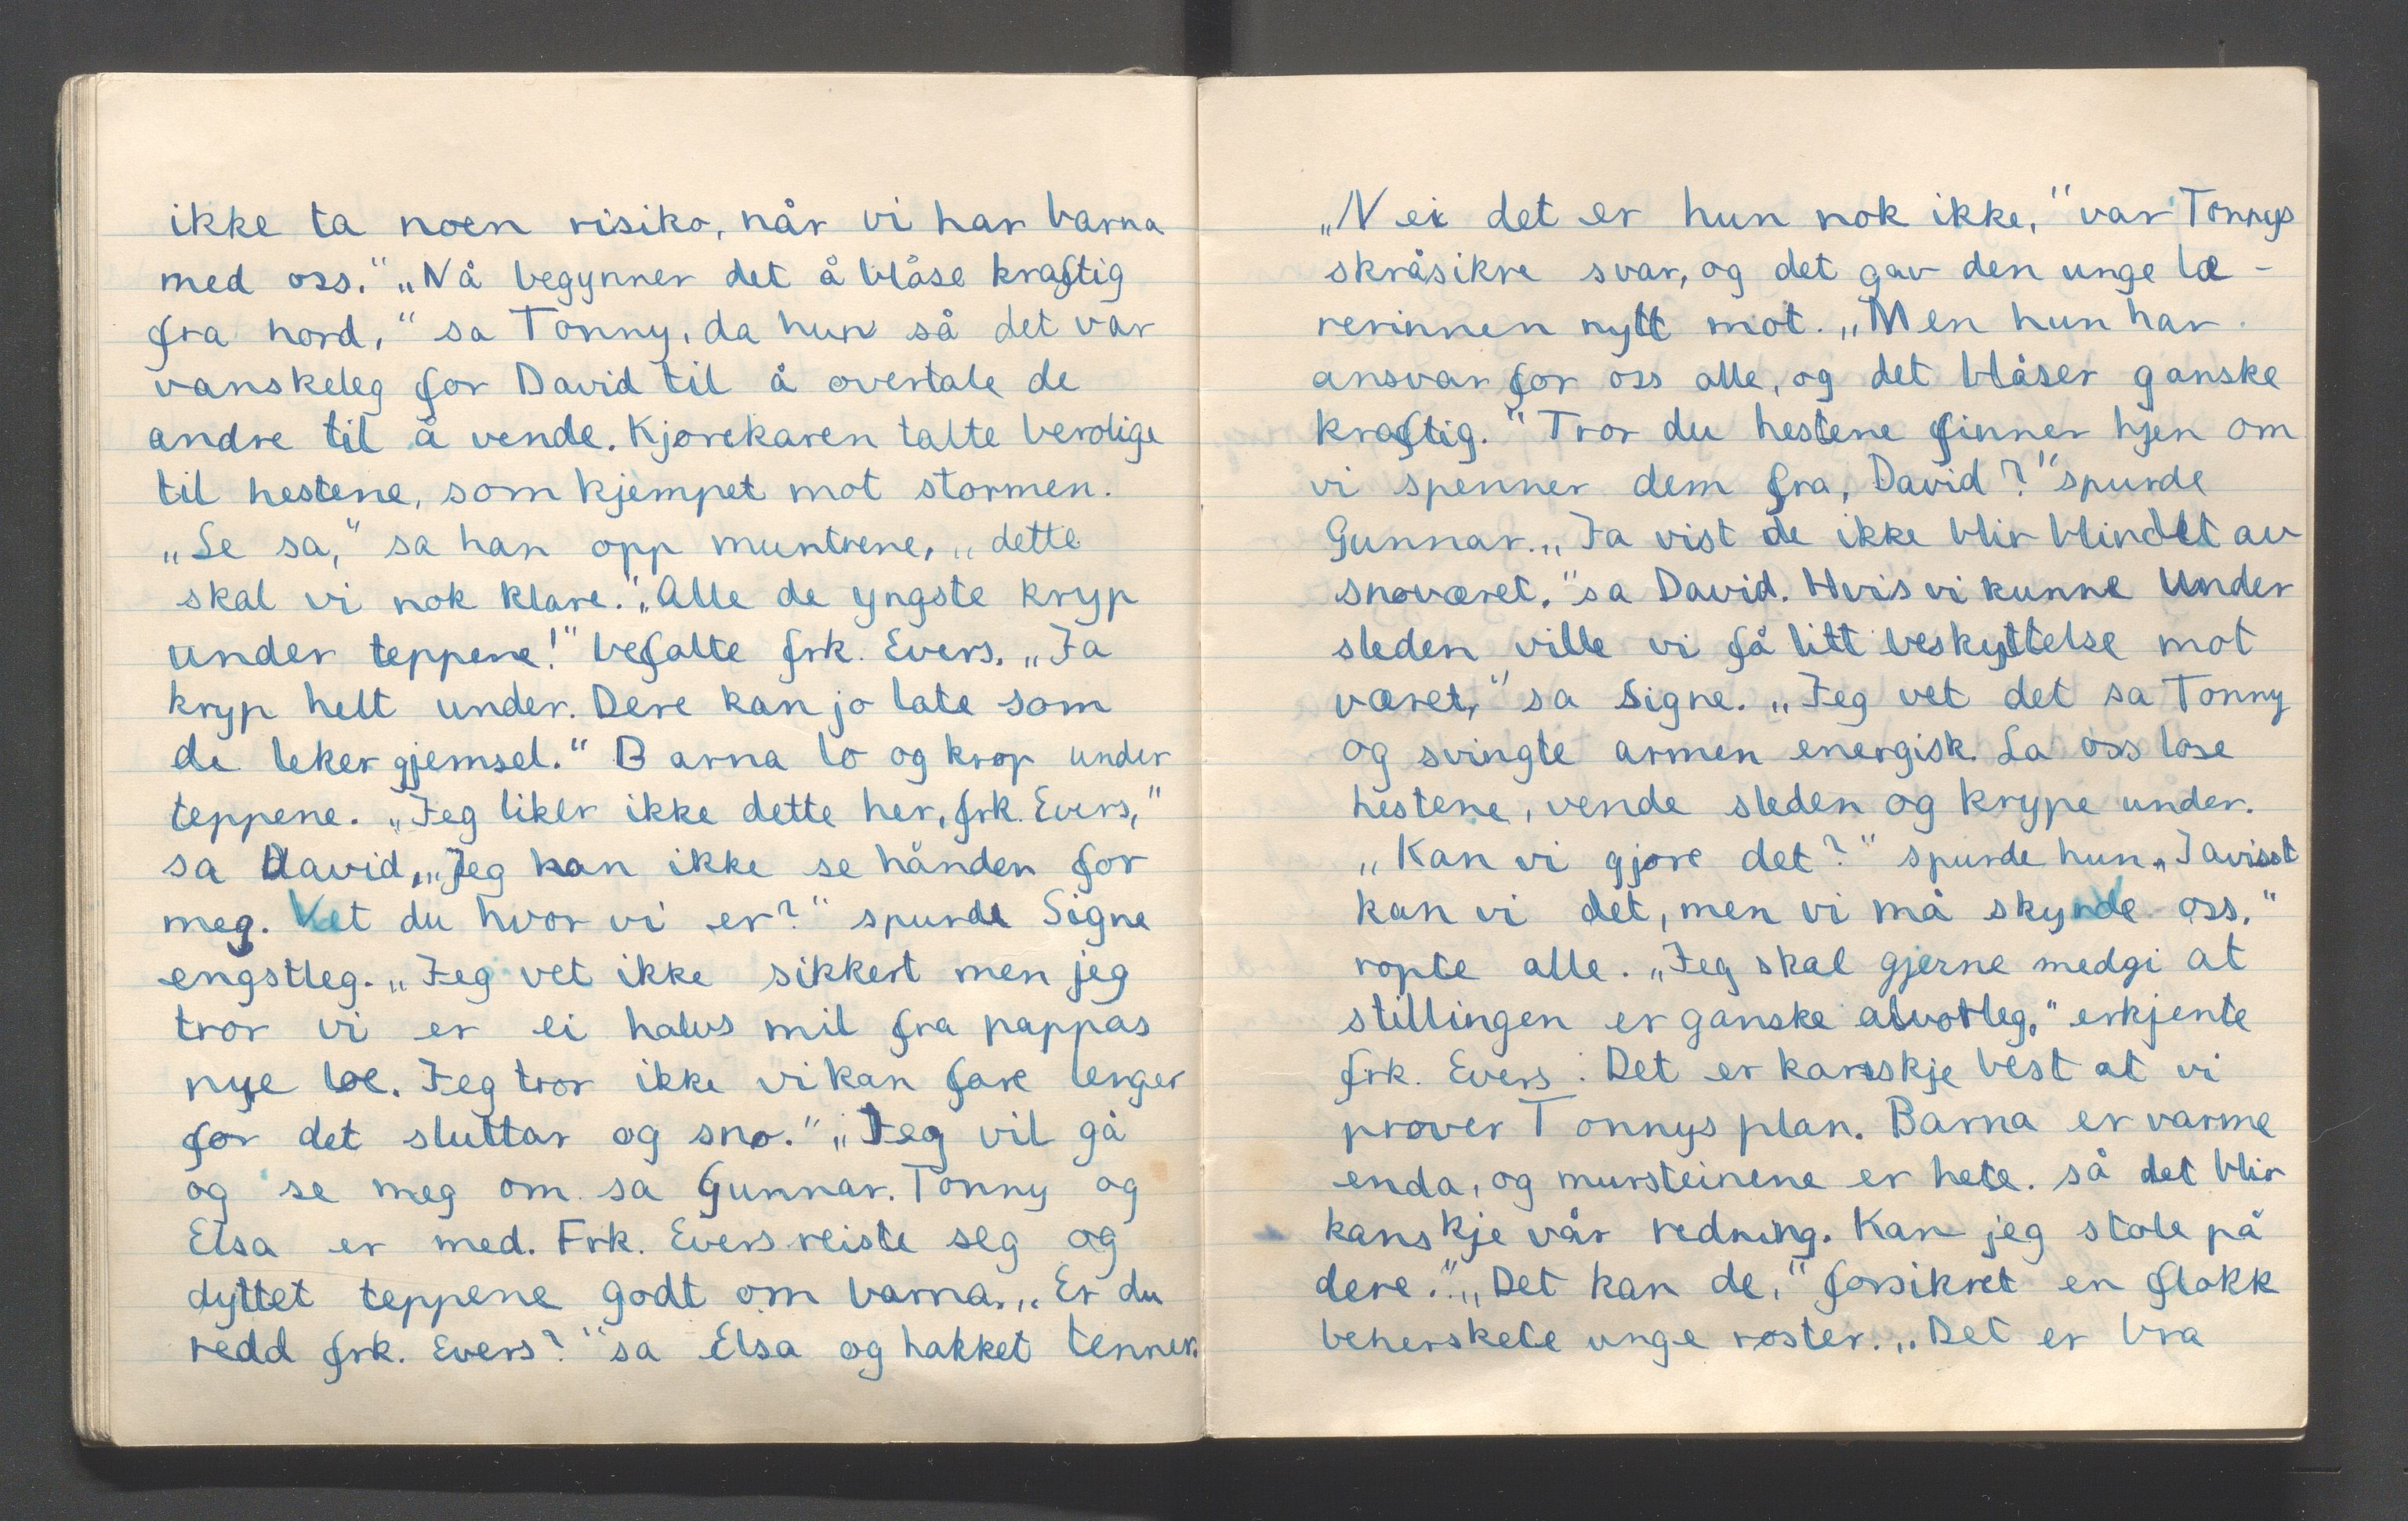 ikke ta noen risiko, når vi har barna
med oss." „Nå begynner det å blåse kraftig
fra nord," sa Tonny, da hun så det var
vanskeleg for David til å overtale de
andre til å vende. Kjørekaren talte berolige
til hestene, som kjempet mot stormen.
„Se sa," sa han opp muntrene, „dette
skal vi nok klare." „Alle de yngste kryp
under teppene!" befalte frk. Evers. „Ja
kryp helt under. Dere kan jo late som
de leker gjemsel." Barna lo og krop under
teppene. „Jeg liker ikke dette her, frk. Evers,"
sa David, „Jeg kan ikke se hånden for
meg. Vet du hvor vi er?" spurde Signe
engstleg. „Jeg vet ikke sikkert men jeg
tror vi er ei halvs mil fra pappas
nye loe. Jeg tror ikke vi kan fare lenger
for det sluttar og sno." „Jeg vil gå
og se meg om sa Gunnar. Tonny og
Elsa er med. Frk. Evers reiste seg og
dyttet teppene godt om barna. „Er du
redd frk. Evers?" sa Elsa og hakket tenner.
„Nei det er hun nok ikke," var Tonnys
skråsikre svar, og det gav den unge læ-
rerinnen nytt mot. „Men hun har
ansvar for oss alle, og det blåser ganske
kraftig." Tror du hestene finner hjen om
vi spenner dem fra, David?" spurde
Gunnar. „Ja vist de ikke blir blindet av
snoværet," sa David. Hvis vi kunne under
sleden ville vi få litt beskyttelse mot
været," sa Signe. „Jeg vet det sa Tonny
og svingte armen energisk. La oss løse
hestene, vende sleden og krype under.
„Kan vi gjore det?" spurde hun „Javisst
kan vi det, men vi må skynde oss."
ropte alle. „Jeg skal gjerne medgi at
stillingen er ganske alvorleg," erkjente
frk. Evers. Det er kanskje best at vi
prover Tonnys plan. Barna er varme
enda, og mursteinene er hete. så det blir
kanskje vår redning. Kan jeg stole på
dere." „Det kan de," forsikret en flokk
beherskete unge roster. „Det er bra